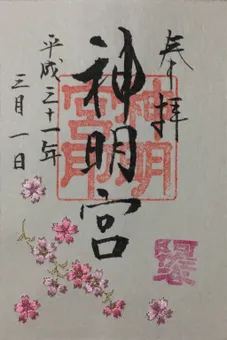 奉拝
神明宮
平成三十一年
三月一日
神明宮印